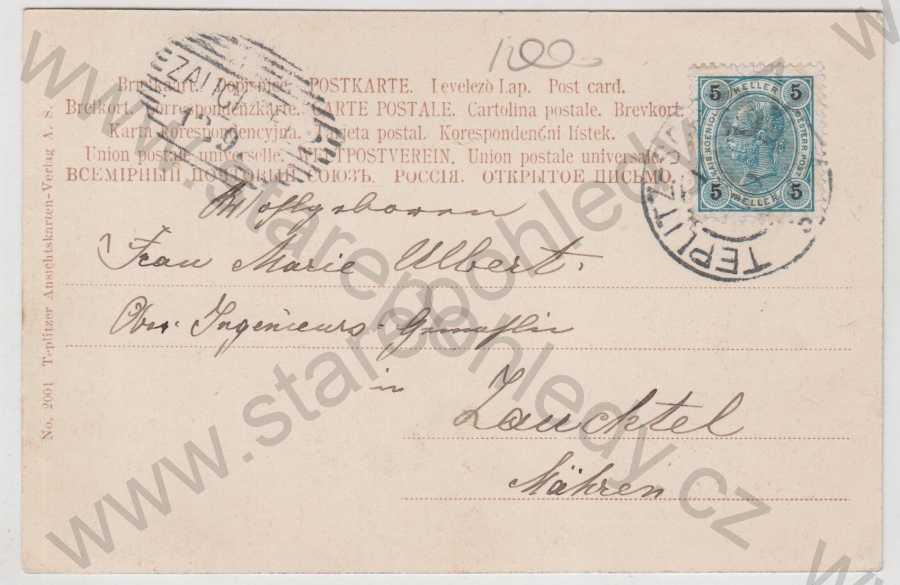 1200
Briefkarte. Dopisnice. POSTKARTE. Levelezö Lap. Post card.
Brefkort. Correspondenzkarte. CARTE POSTALE. Cartolina postale. Brevkort
Karta korespondencyjna. Tarjeta postal. Korespondenční lístek.
Union postale universelle. WELTPOSTVEREIN. Union postale universale.
ВСЕМІРНЫЙ ПОЧТОВЫЙ СОЮЗЪ. РОССІЯ. ОТКРЫТОЕ ПИСЬМО.
5 HELLER 5
5 HELLER 5
TEPLITZ
Frau Marie Ulbert.
Ober-Ingenieurs-Gemahlin
in
Zauchtel
Mähren
No. 2001 Teplitzer Ansichtskarten-Verlag A. S.
www.starepohledy.cz